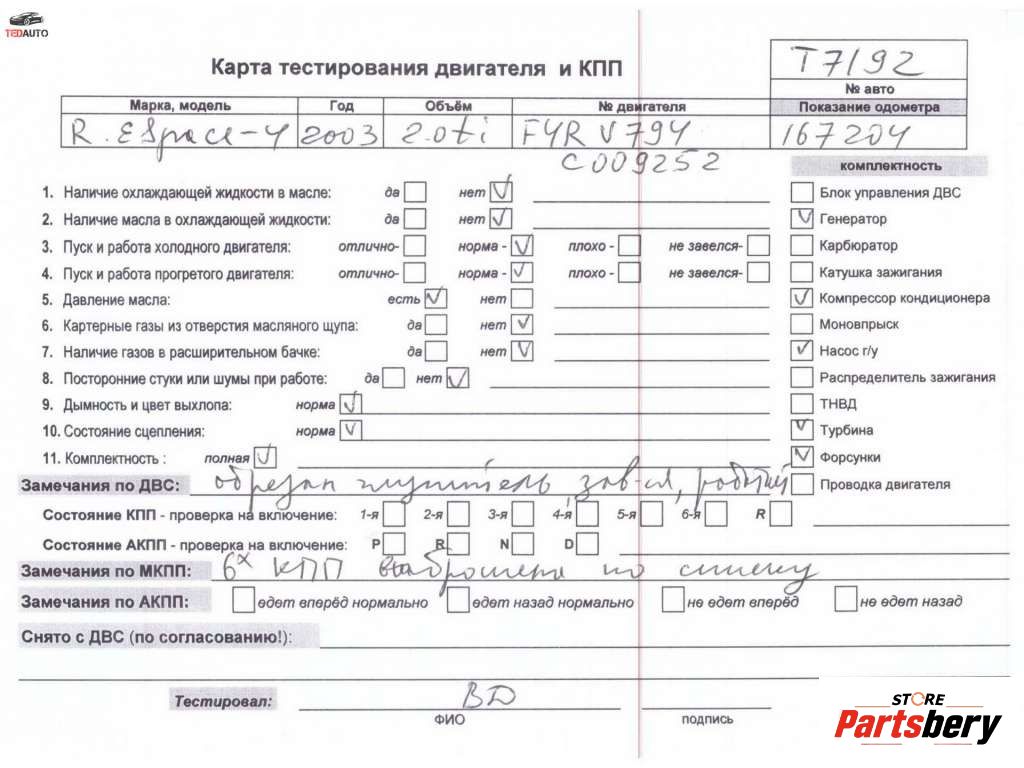 TEDAUTO
Карта тестирования двигателя и КПП
T7192
№ авто
Марка, модель Год Объём № двигателя Показание одометра
R. ESpace-4 2003 2.0ti F4R V794 167204
C009252
комплектность
1. Наличие охлаждающей жидкости в масле: да нет Блок управления ДВС
2. Наличие масла в охлаждающей жидкости: да нет Генератор
3. Пуск и работа холодного двигателя: отлично- норма - плохо - не завелся- Карбюратор
4. Пуск и работа прогретого двигателя: отлично- норма - плохо - не завелся- Катушка зажигания
5. Давление масла: есть нет Компрессор кондиционера
6. Картерные газы из отверстия масляного щупа: да нет Моновпрыск
7. Наличие газов в расширительном бачке: да нет Насос г/у
8. Посторонние стуки или шумы при работе: да нет Распределитель зажигания
9. Дымность и цвет выхлопа: норма ТНВД
10. Состояние сцепления: норма Турбина
11. Комплектность : полная Форсунки
Замечания по ДВС: обрезан глушитель зав-ся, Проводка двигателя
Состояние КПП - проверка на включение: 1-я 2-я 3-я 4-я 5-я 6-я R
Состояние АКПП - проверка на включение: P R N D
Замечания по МКПП: 6х КПП по
Замечания по АКПП: едет вперёд нормально едет назад нормально не едет вперёд не едет назад
Снято с ДВС (по согласованию!):
Тестировал: ВД
ФИО подпись
STORE
Partsbery